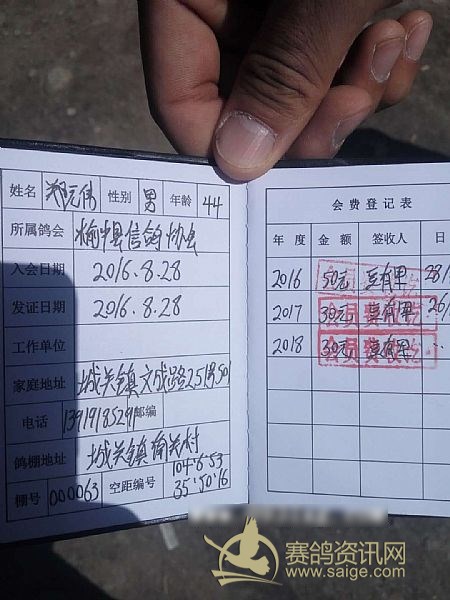 姓名 郑元伟 性别 男 年龄 44
所属鸽会 榆中县信鸽协会
入会日期 2016.8.28
发证日期 2016.8.28
工作单位
家庭地址 城关镇文成路251号501
电话 13919185291 邮编
鸽棚地址 城关镇南关村
棚号 000063 空距编号 104°6'53 35°50'16
会费登记表
年度 金额 签收人 日
2016 50元 28/
2017 30元 26/
2018 30元
赛鸽资讯网
www.saige.com